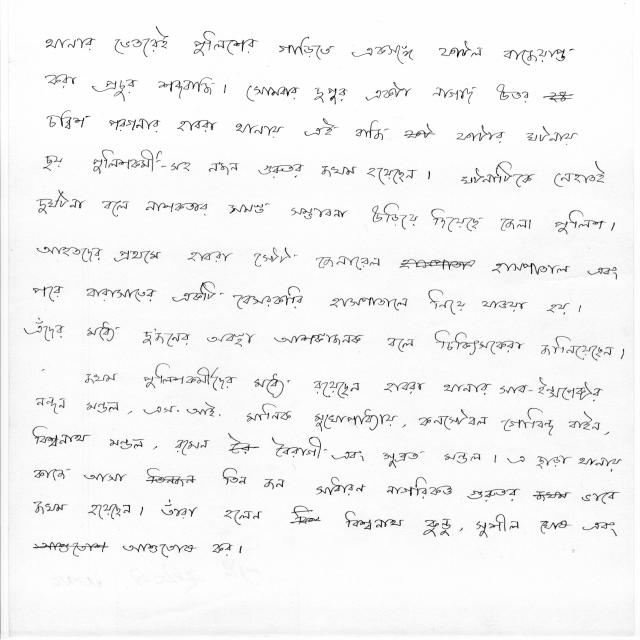 থানার ভেতরেই পুলিশের গাড়িতে একসঙ্গে ফাটল বাজেয়াপ্ত
করা প্রচুর শব্দবাজি। সোমবার দুপুর একটা নাগাদ উত্তর
চব্বিশ পরগনার হাবরা থানায় এই বাজি ফাটার ঘটনায়
ছয় পুলিশকর্মী-সহ নজন গুরুতর জখম হয়েছেন। ঘটনাটিকে নেহাতই
দুর্ঘটনা বলে নাশকতার সমস্ত সম্ভাবনা উড়িয়ে দিয়েছে জেলা পুলিশ।
আহতদের প্রথমে হাবরা স্টেট জেনারেল হাসপাতাল এবং
পরে বারাসাতের একটি বেসরকারি হাসপাতালে নিয়ে যাওয়া হয়।
এঁদের মধ্যে দুজনের অবস্থা আশঙ্কাজনক বলে চিকিৎসকেরা জানিয়েছেন।
জখম পুলিশকর্মীদের মধ্যে রয়েছেন হাবরা থানার সাব-ইন্সপেক্টর
নন্দন মন্ডল, এস.আই. মানিক মুখোপাধ্যায়, কনস্টেবল গোবিন্দ বাইন,
বিশ্বনাথ মন্ডল, রমেন বৈরাগী এবং সুব্রত মন্ডল। এ ছাড়া থানায়
কাজে আসা তিন জন সাধারন নাগরিকও গুরুতর ভাবে
জখম হয়েছেন। তাঁরা হলেন বিশ্বনাথ কুন্ডু, সুশীল এবং
আশুতোষ কর।